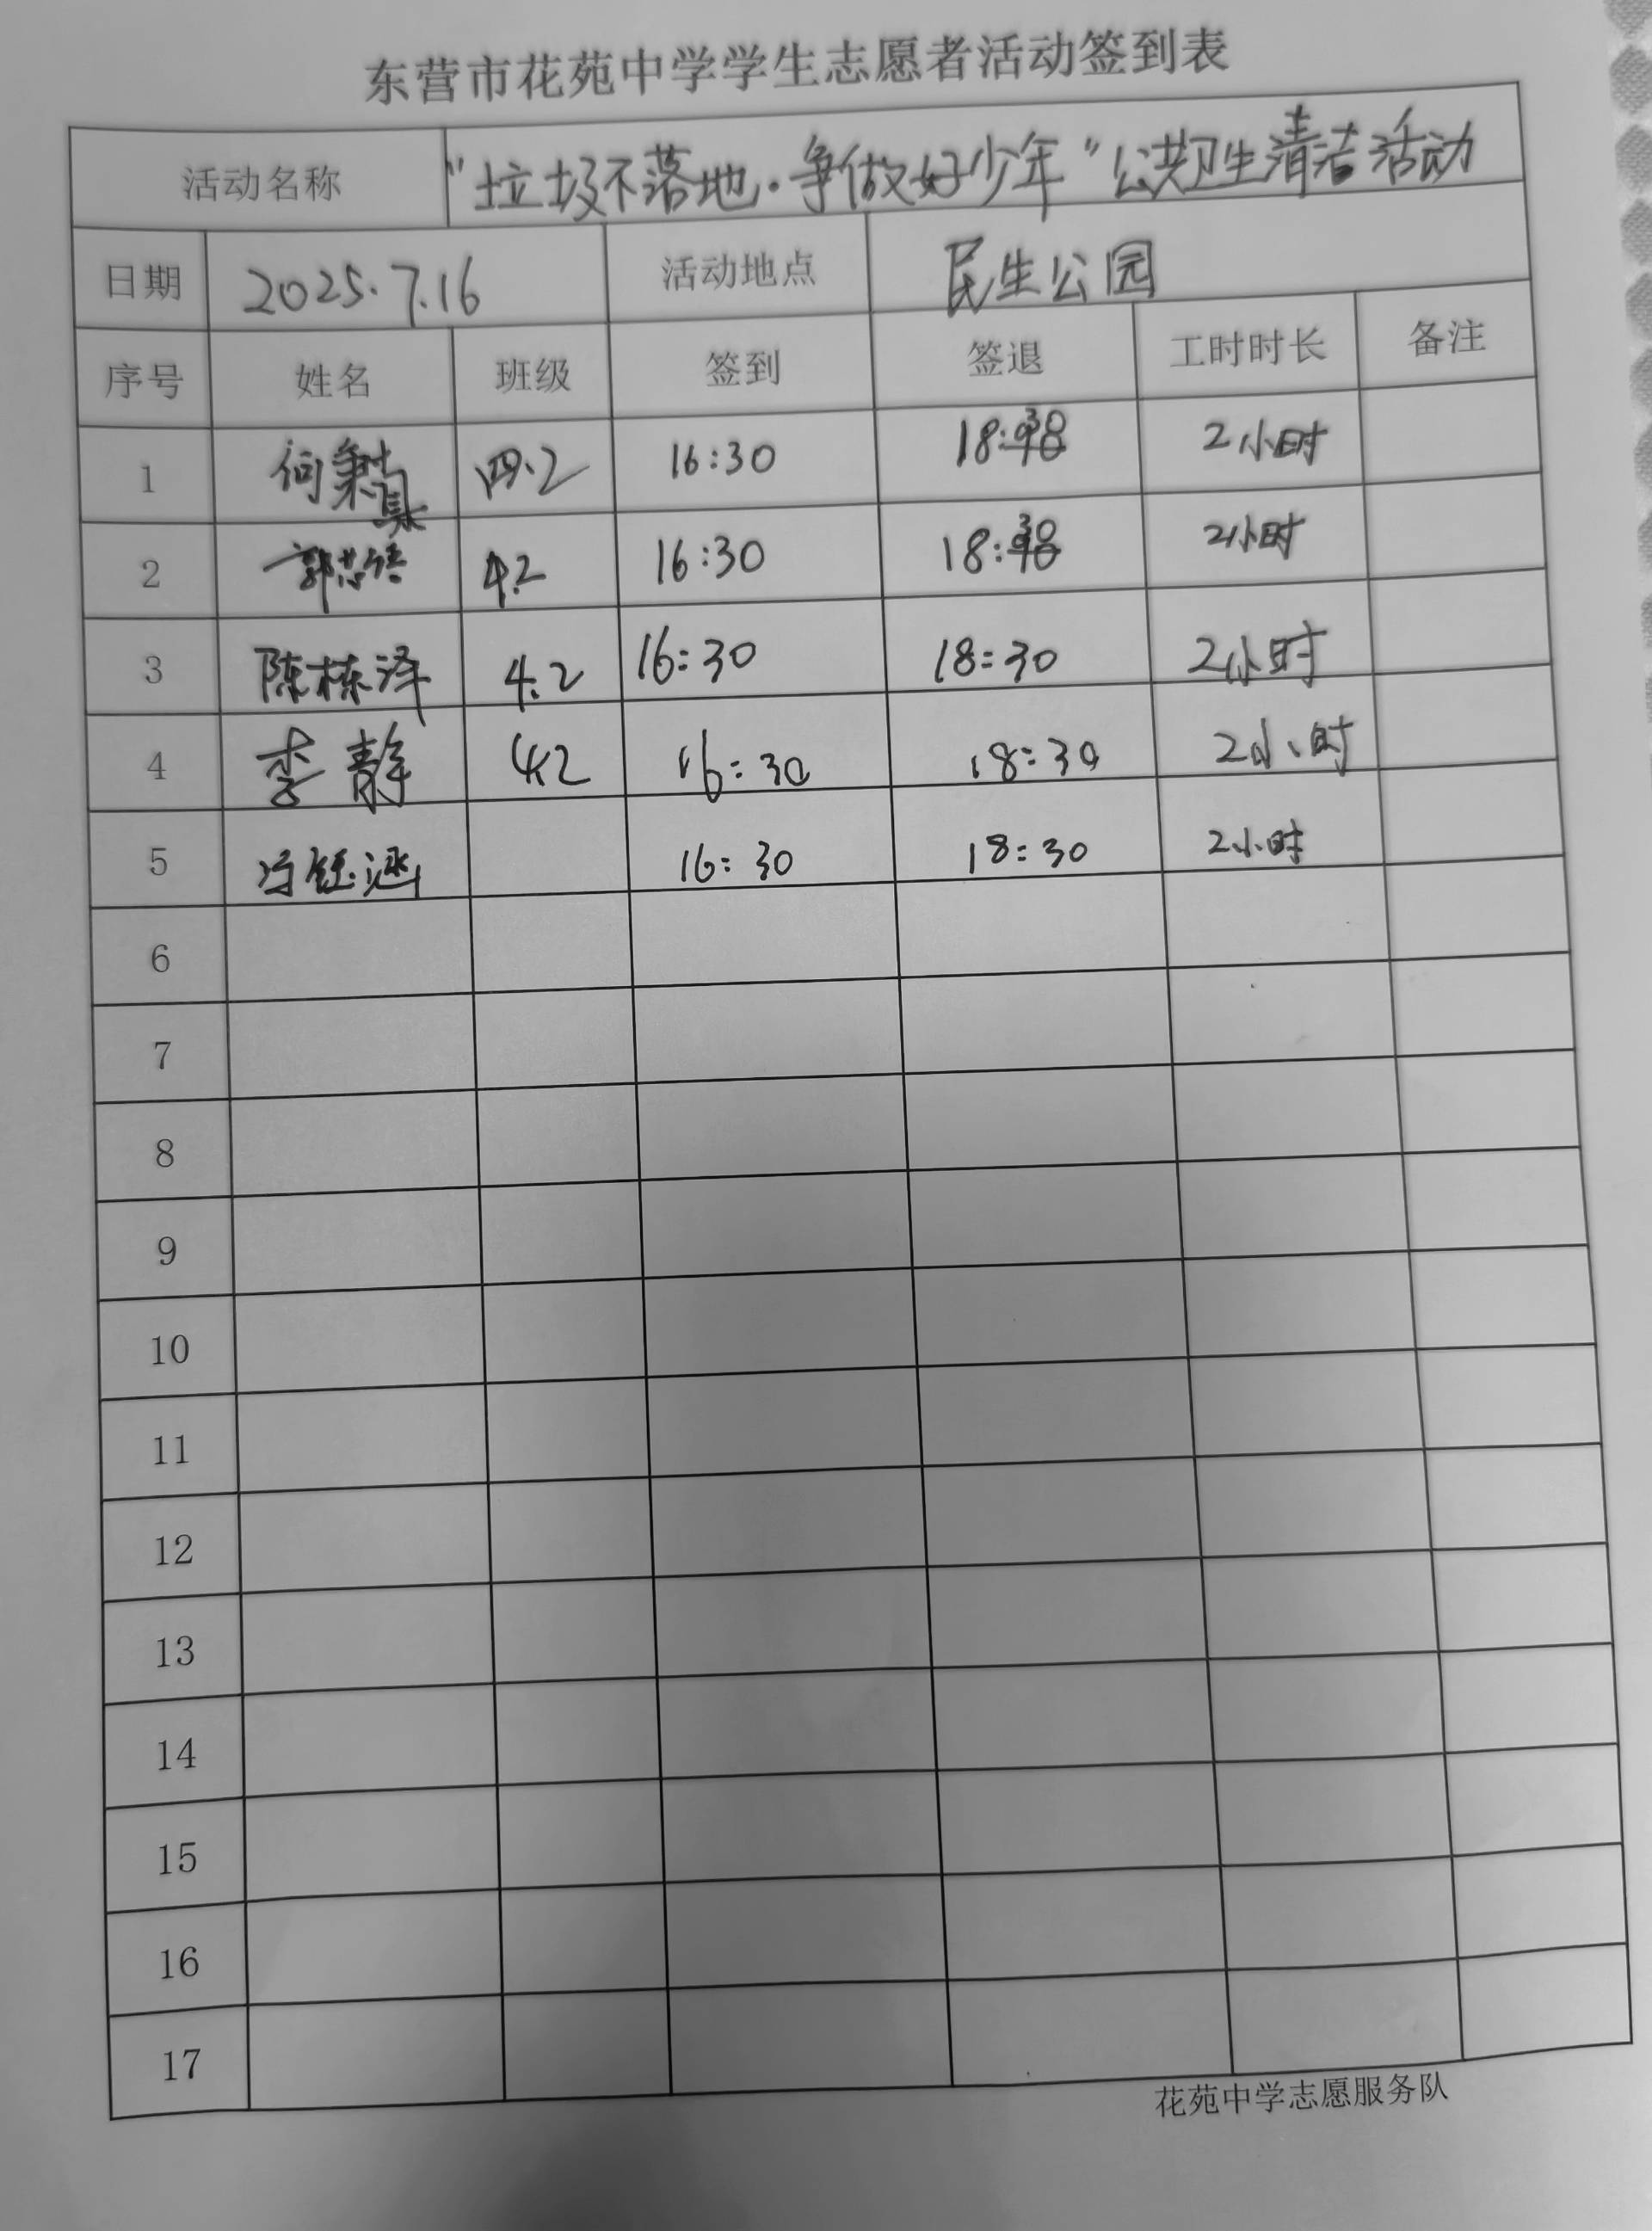 东营市花苑中学学生志愿者活动签到表
活动名称 "垃圾不落地·争做好少年"公共卫生清洁活动
日期 2025.7.16 活动地点 民生公园
序号 姓名 班级 签到 签退 工时时长 备注
1 何秉真 四.2 16:30 18:30 2小时
2 郭 4.2 16:30 18:30 2小时
3 陈栋泽 4.2 16:30 18:30 2小时
4 李静 4.2 16:30 18:30 2小时
5 冯钰涵 16:30 18:30 2小时
6
7
8
9
10
11
12
13
14
15
16
17
花苑中学志愿服务队